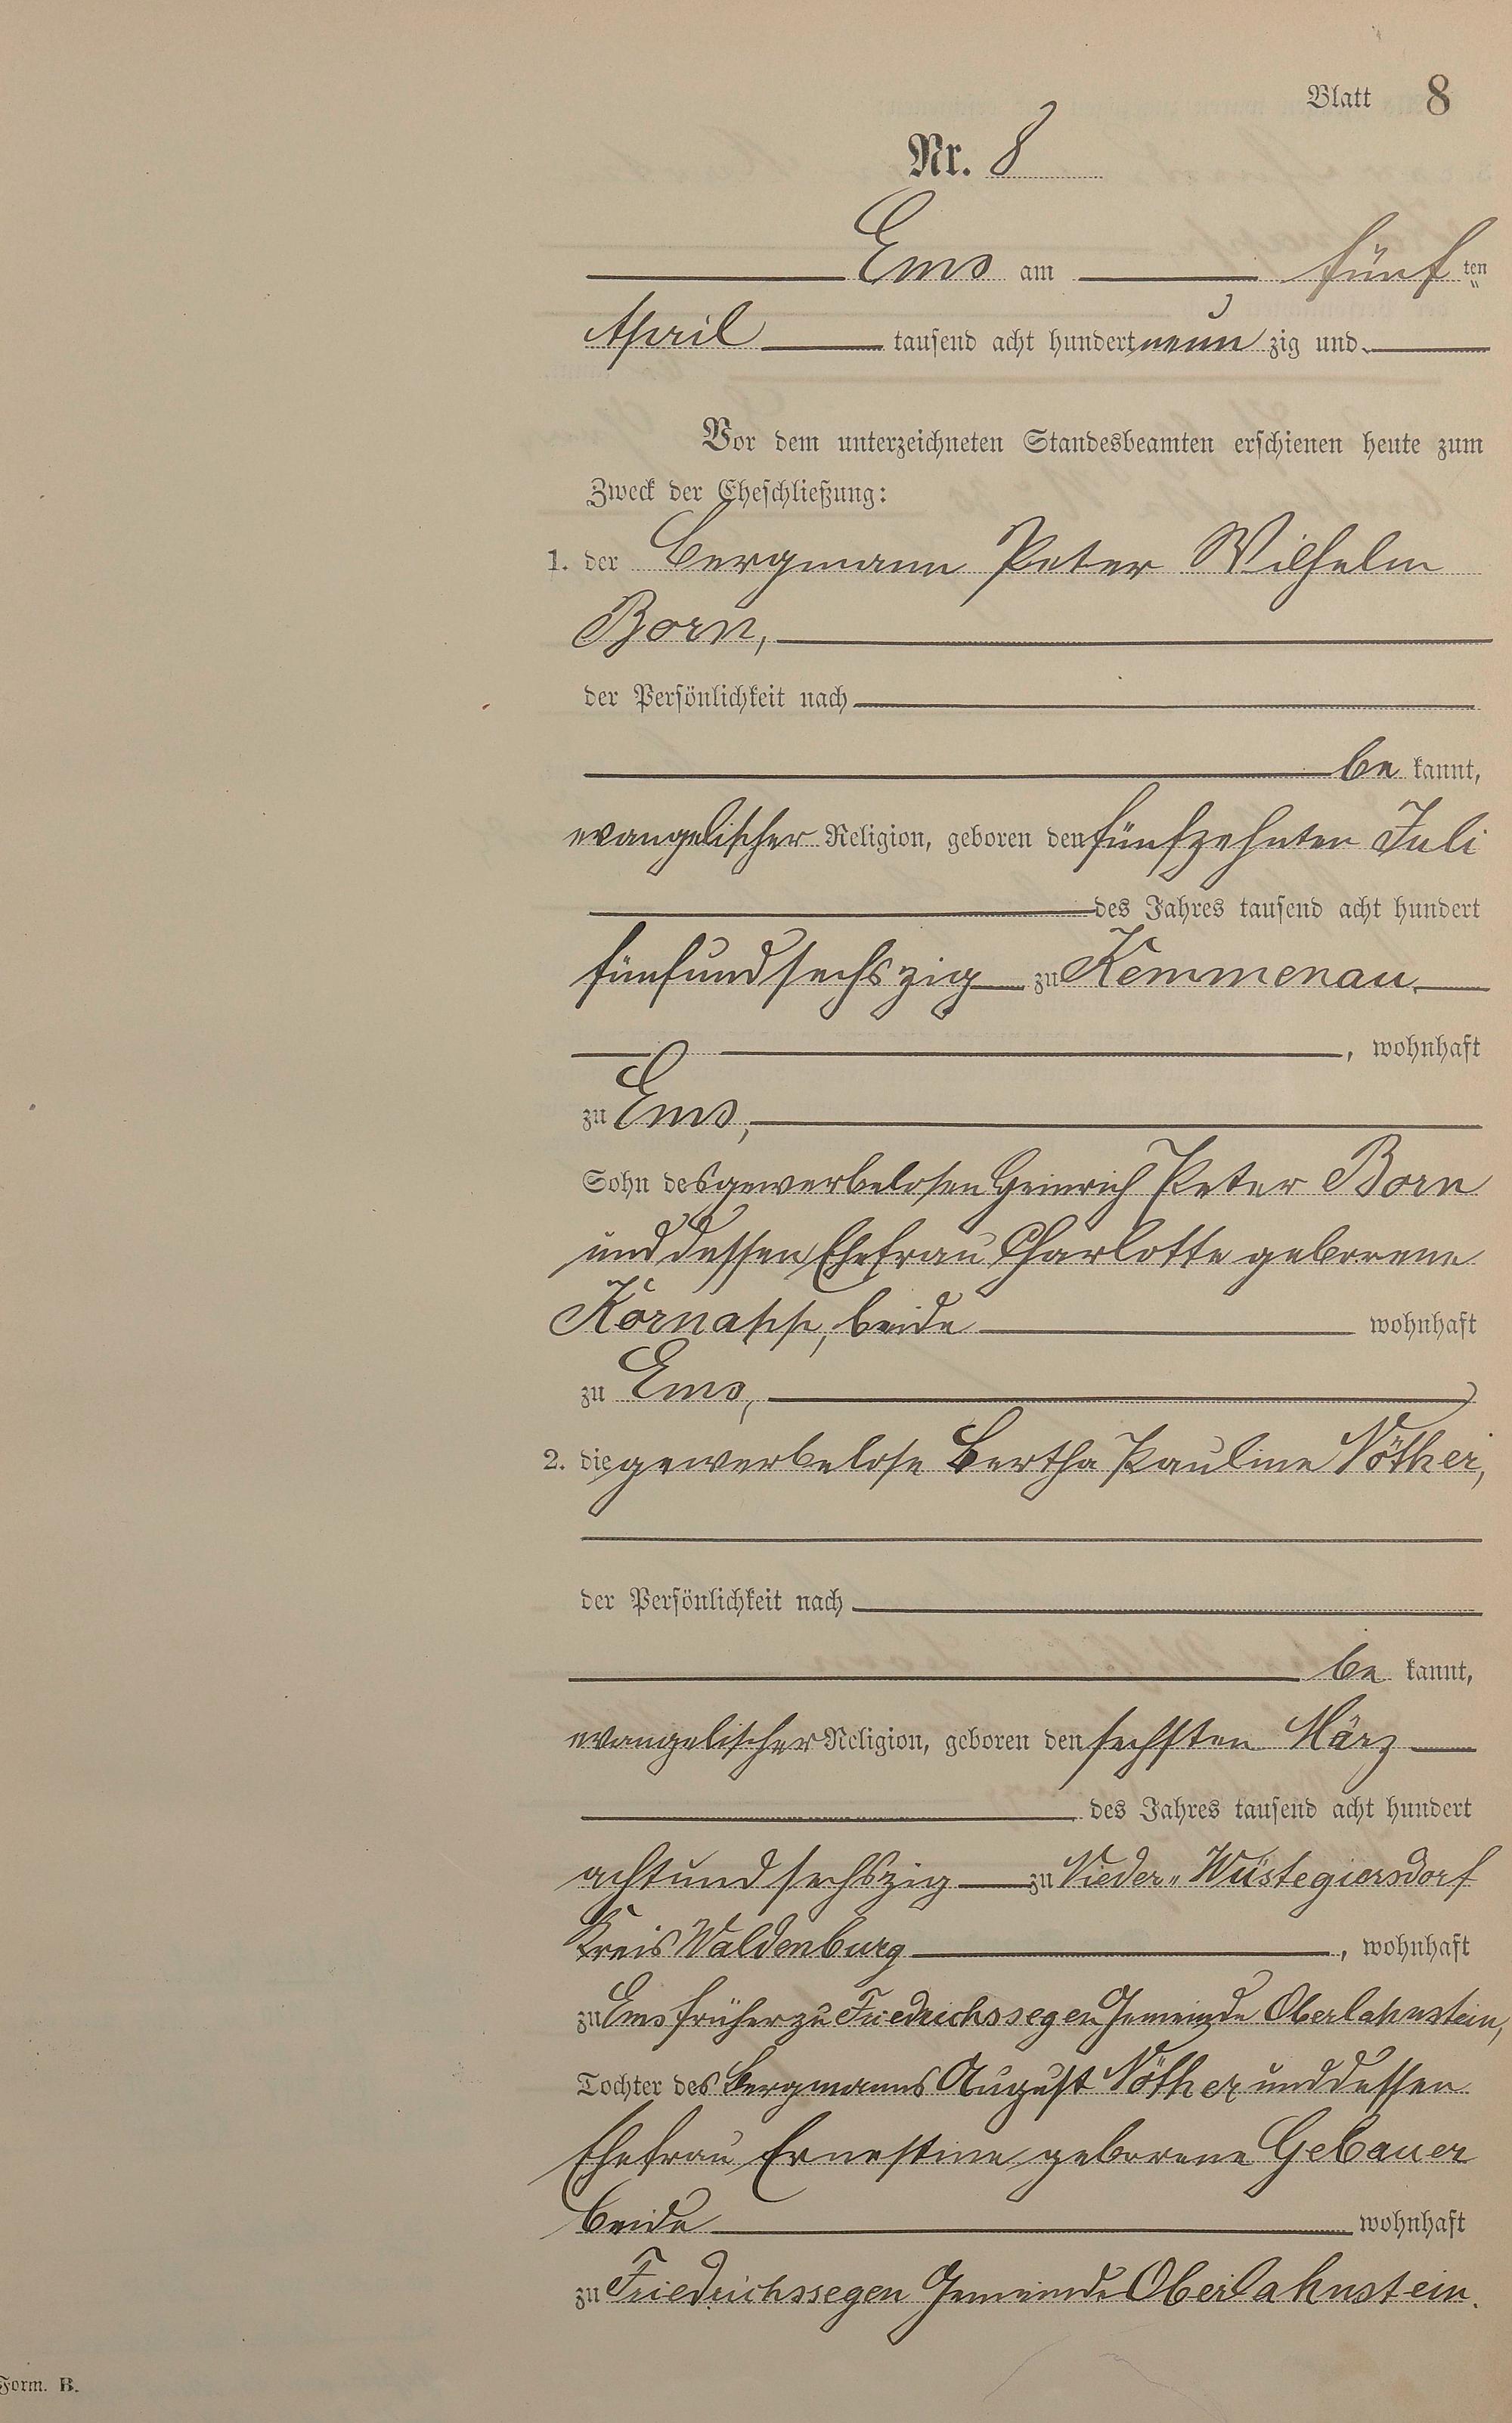 Blatt 8
Nr. 8
Ems am fünf ten
April tausend acht hundert neun zig und
Vor dem unterzeichneten Standesbeamten erschienen heute zum
Zweck der Eheschließung:
1. der Bergmann Peter Wilhelm
Born,
der Persönlichkeit nach
be kannt,
evangelischer Religion, geboren den fünfzehnten Juli
des Jahres tausend acht hundert
fünfundsechszig zu Kemmenau
, wohnhaft
zu Ems,
Sohn des gewerbelosen Heinrich Peter Born
und dessen Ehefrau Charlotte geborene
Körnapp, beide wohnhaft
zu Ems,
2. die gewerbelose Bertha Pauline Nöther,
der Persönlichkeit nach
be kannt,
evangelischer Religion, geboren den sechsten März
des Jahres tausend acht hundert
achtundsechszig zu Nieder-Wüstegiersdorf
Kreis Waldenburg , wohnhaft
zu Ems früher zu Friedrichssegen Gemeinde Oberlahnstein,
Tochter des Bergmanns August Nöther und dessen
Ehefrau Ernestine geborene Gebauer
beide wohnhaft
zu Friedrichssegen Gemeinde Oberlahnstein.
Form. B.